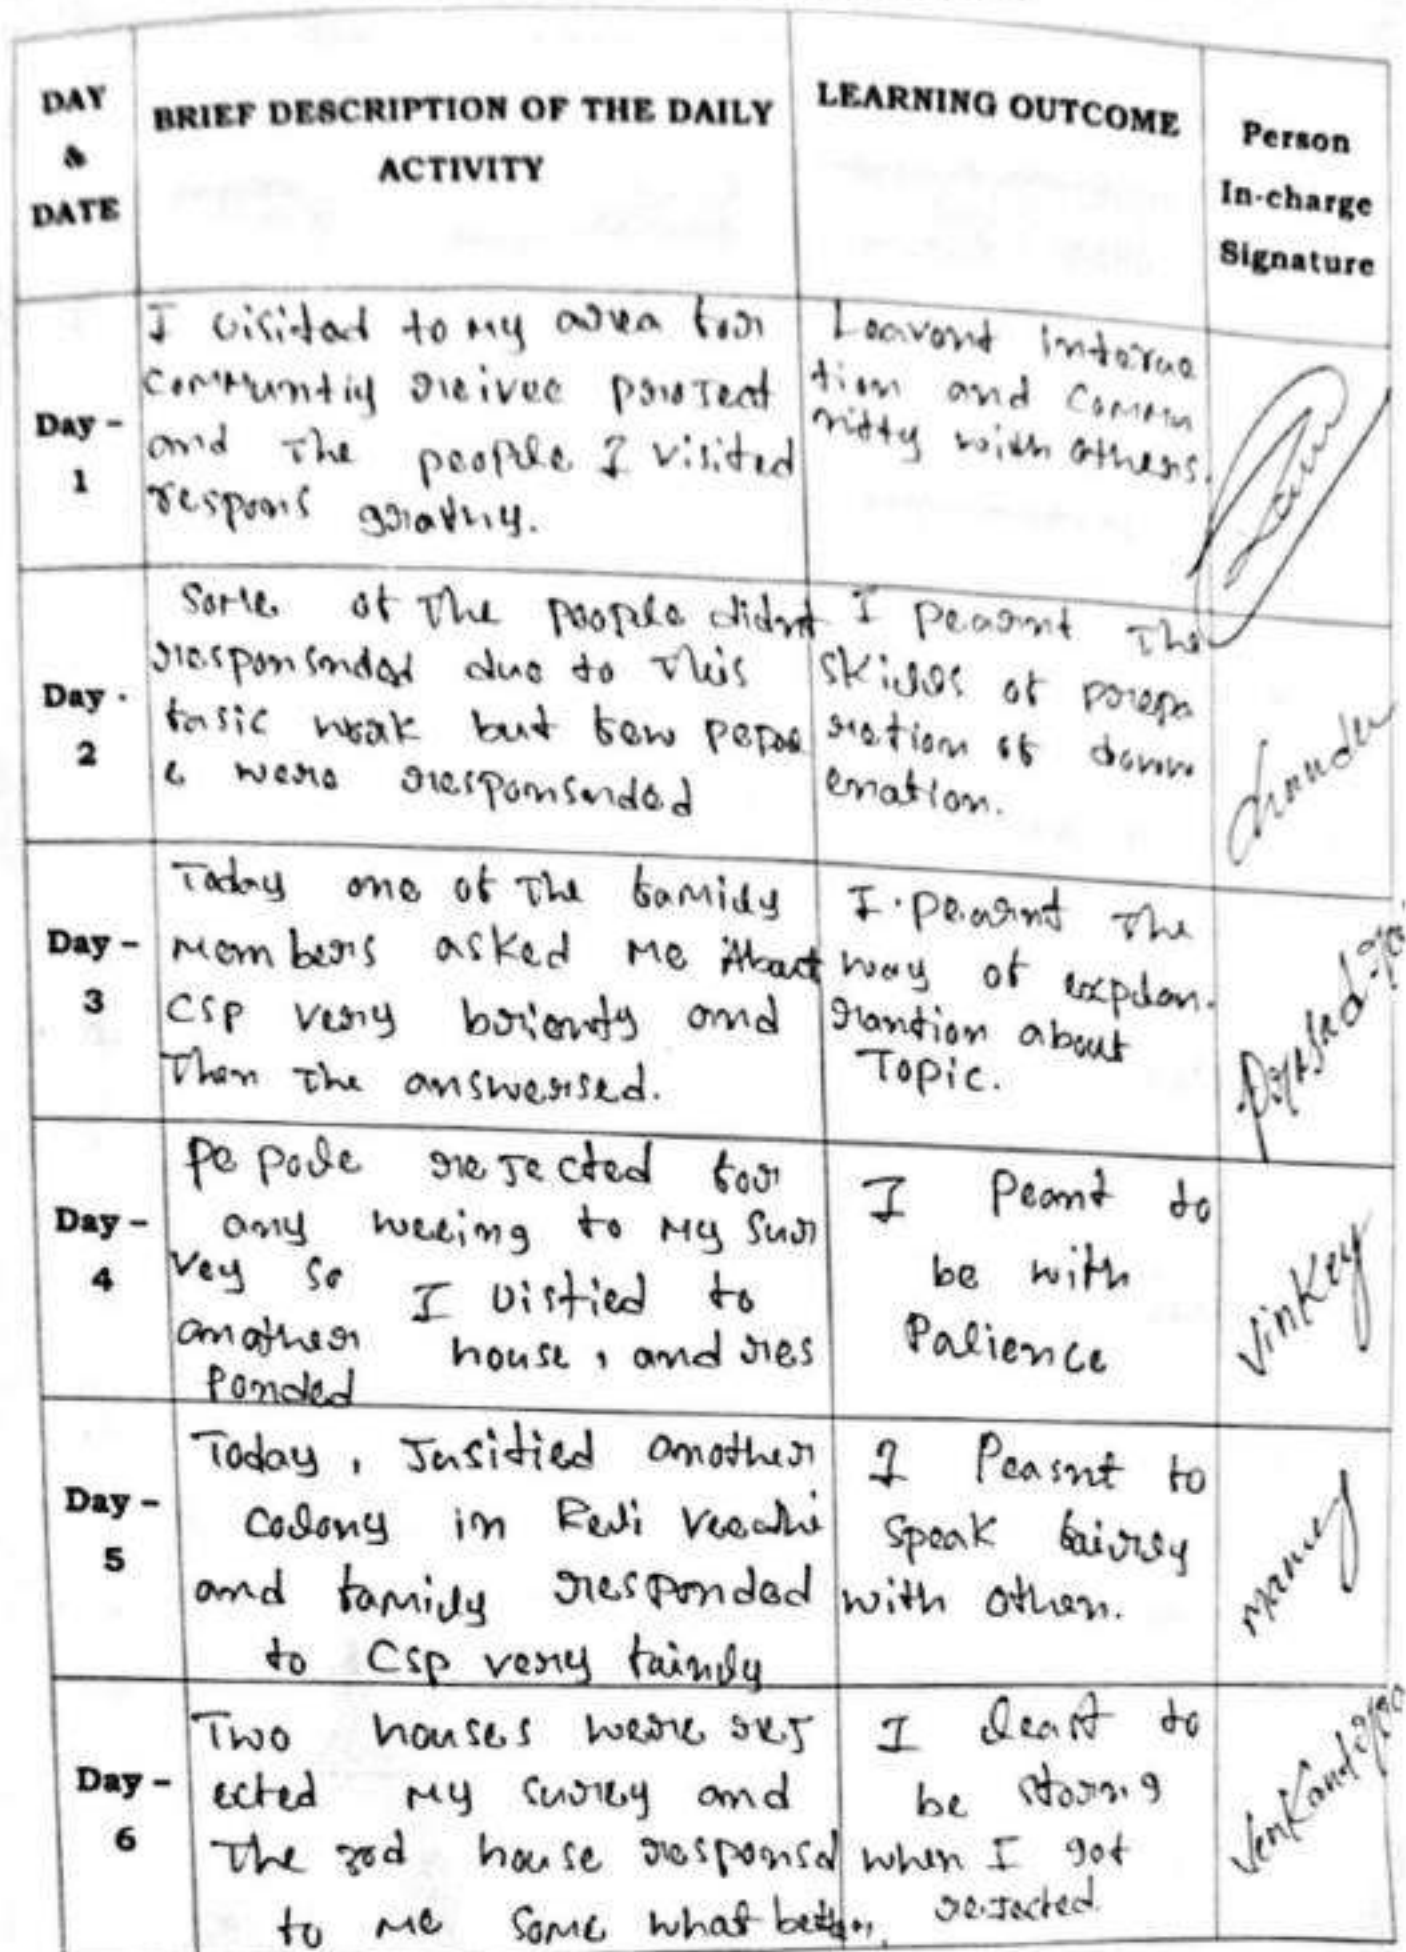 DAY & DATE
BRIEF DESCRIPTION OF THE DAILY ACTIVITY
LEARNING OUTCOME
Person In-charge Signature
Day - 1
I visitad to my area for
Communtiy reivec project
and The people I visited
respons grathy.
Learont interac
tion and Comm
nitty with others.
Day - 2
Some of The people didnt
responsnded due to This
tasic woak but few pepol
e were responsnded
I Pearnt The
skills of prepa
ration of
enation.
chander
Day - 3
Today one of The family
members asked me About
CSP very briently and
Then The answersed.
I Pearnt The
way of explan-
rantion about
Topic.
Day - 4
Pe pole rejected for
any weeing to my Sur
vey so I vistied to
another house, and res
ponded
I Peant to
be with
Palience
Vinkey
Day - 5
Today, Jusitied another
Colony in Relli
and family responded
to CSP very faindy
I Peasnt to
speak fairly
with other.
Day - 6
Two houses were rej
ected my survey and
The 3rd house responsd
to me some what better,
I leart to
be
when I got
rejected